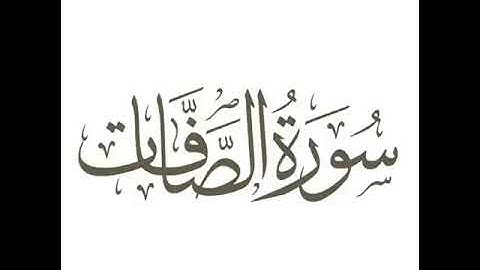 سُورَةُ الصَّافَّات